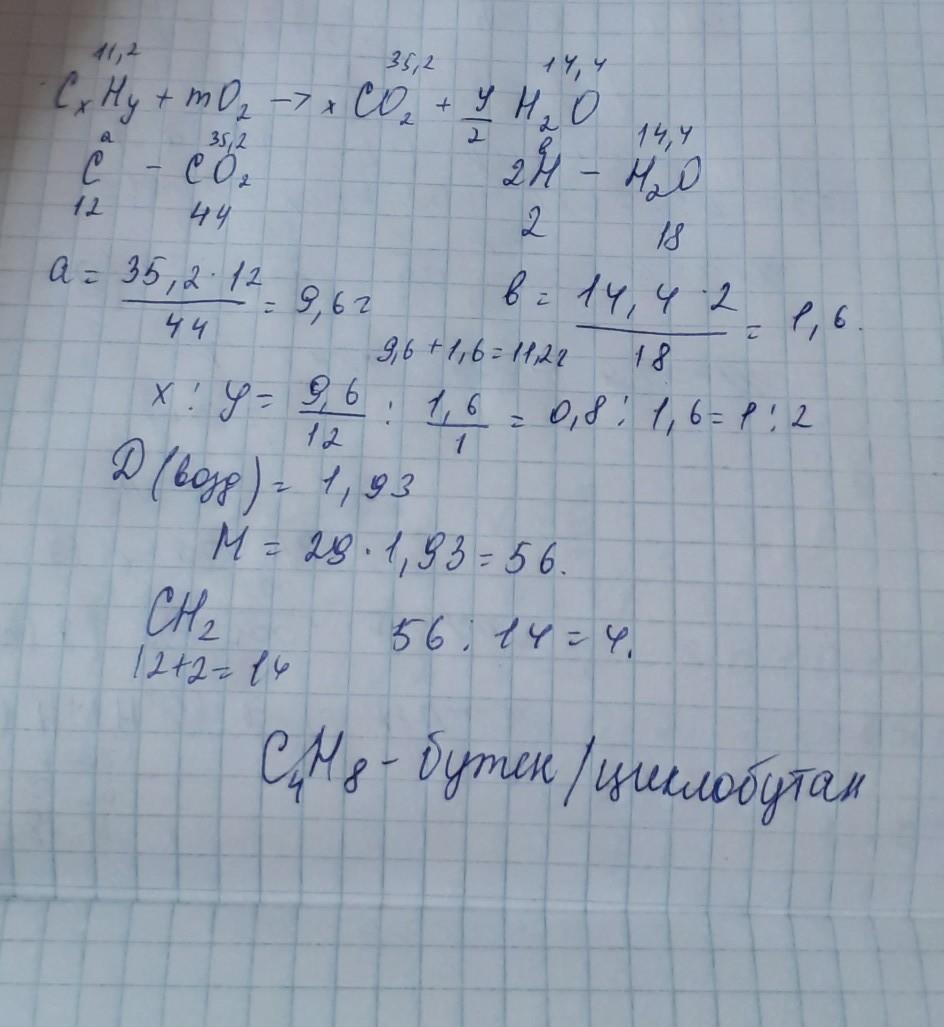 11,2 35,2 14,4
CₓHᵧ + mO₂ → xCO₂ + y/2 H₂O
a 35,2 в 14,4
C - CO₂ 2H - H₂O
12 44 2 18
a = 35,2·12/44 = 9,6г в = 14,4·2/18 = 1,6.
9,6+1,6=11,2г
x : y = 9,6/12 : 1,6/1 = 0,8 : 1,6 = 1 : 2
D(возд) = 1,93
M = 29·1,93 = 56.
CH₂ 56 : 14 = 4.
12+2=14
C₄H₈ - бутен/циклобутан